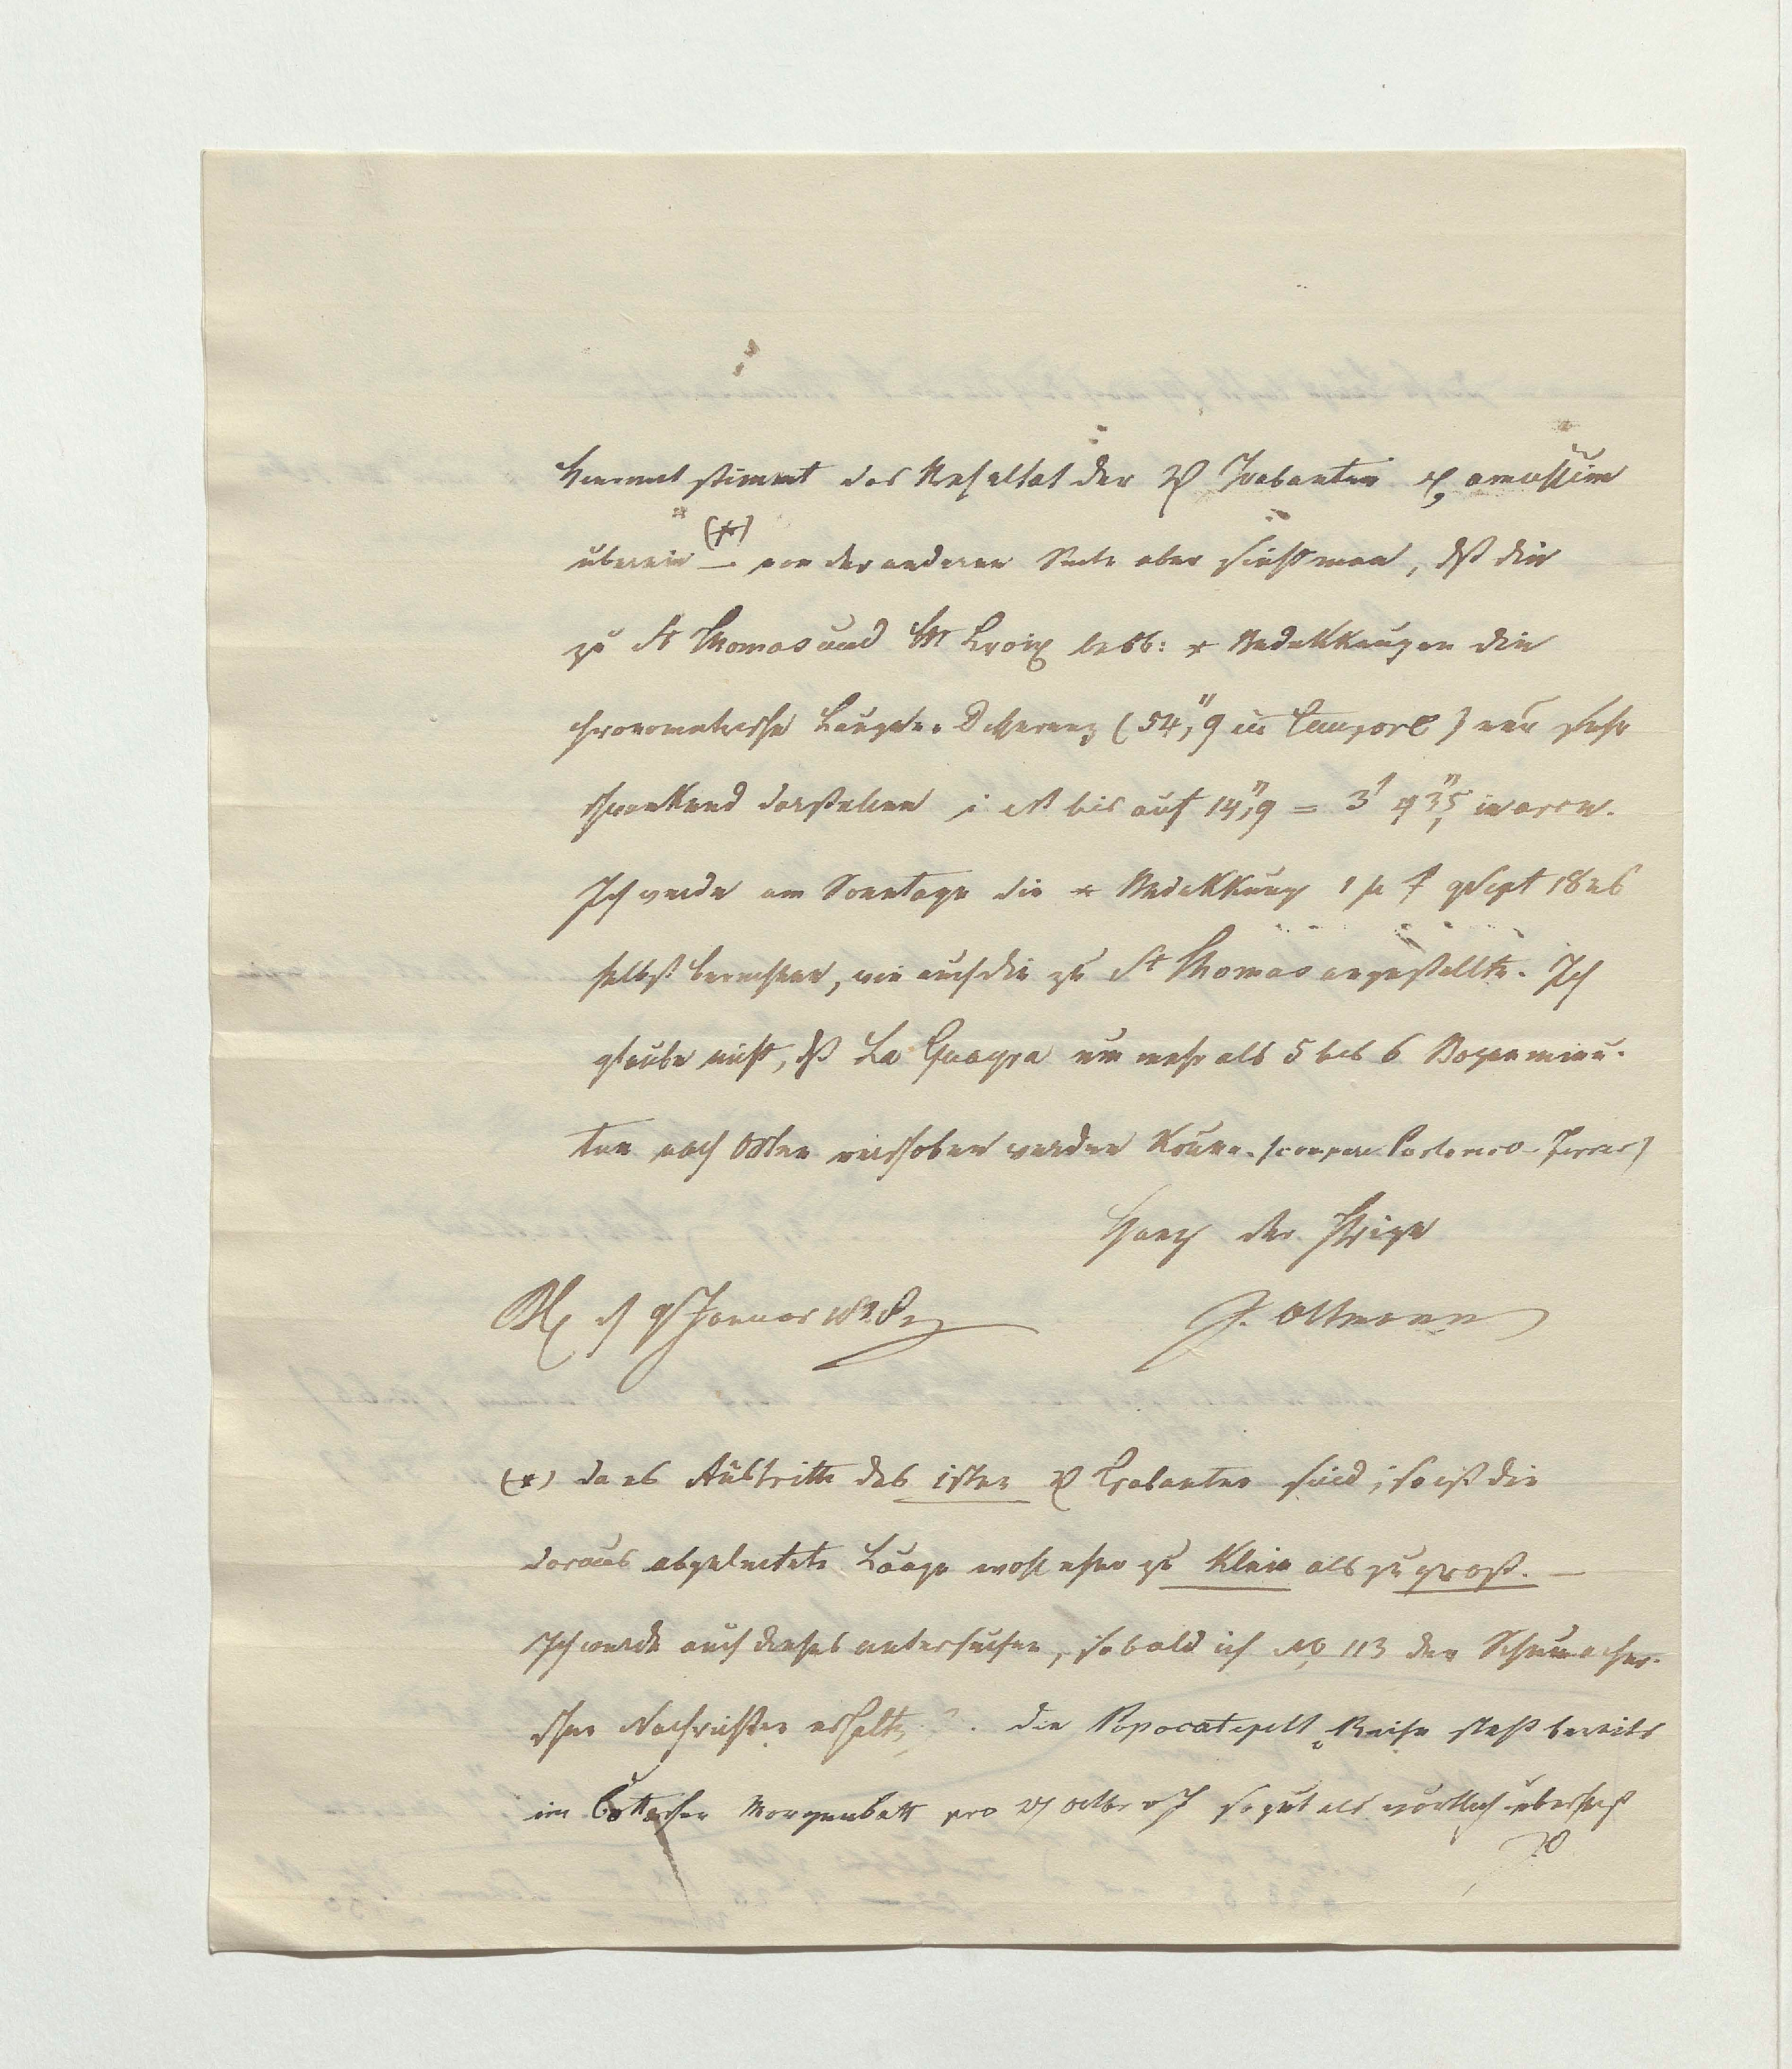 Hiermit stimmt das Resultat der ♃ Trabanten amussim
überein (*) — von der anderen Seite aber sieht man, dß die
zu St Thomas und St Croix beob: * Bedekkungen die
chronometrische Längen-Differenz (54",9 in tempore) nur sehr
schwankend darstellen i est bis auf 14",9 = 3' 43",5 in arcu.
Ich werde am Sonntage die * Bedekkung 1 μ Sept 1826
selbst berechnen, wie auch die zu St Thomas angestellte. Ich
glaube nicht, dß La Guayra um mehr als 5 bis 6 Bogenminu-
ten nach Osten verschoben werden könne. (compare Portorico-Ferrer)
Ganz der Ihrige
d 9 Januar 1828
J. Oltmanns
(*) da es Austritte des 1sten ♃ Trabanten sind; so ist die
daraus abgeleitete Länge wohl eher zu klein als zu groß. —
Ich werde auch dieses untersuchen, sobald ich No 113 der Schumacher-
schen Nachrichten erhalte. die Popocatepetl Reise steht bereits
im Cottaischen Morgenbatt pro Octbr v J so gut als wörtlich übersetzt